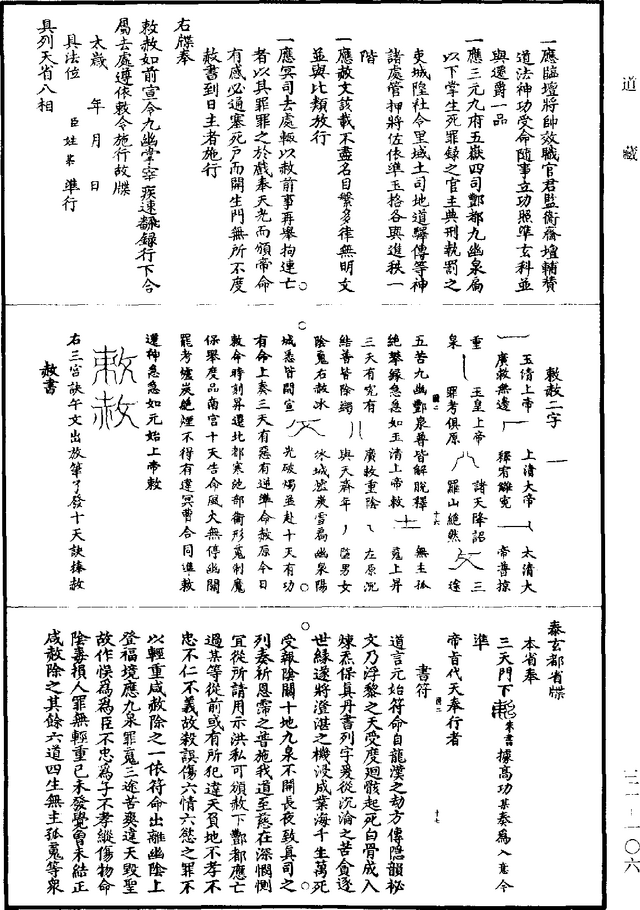 道藏
一應臨壇將帥效職官君監衛齋壇輔贊
道法神功受命隨事立功照準玄科並
與遷爵一品
一應三元九府五嶽四司酆都九幽泉扃
以下掌生死罪録之官主典刑執罰之
吏城隍社令里域土司地道驛傳等神
諸處管押將佐依準玉格各與進秩一
階
一應赦文該載不盡名目繁多律無明文
並與比類放行
一應冥司去處輙以赦前事再舉拘連亡
者以其罪罪之於戲奉天光而頒帝命
有感必通塞死戶而開生門無所不度
赦書到日主者施行
右牒奉
敕赦如前宣令九幽掌宰疾速翻録行下合
屬去處遵依敕令施行故牒
太歲 年 月 日
具法位 臣姓某 準行
具列天省八相
敕赦二字
玉清上帝 上清大帝 太清大
廣敕無邊 釋宥難克 帝普掠
重 玉皇上帝 諸天降詔 三
泉 罪考俱原 羅山絕然 途
五苦九幽酆泉尊皆解脫釋
絕攀緣急急如玉清上帝敕 無主孤
魂上昇
三天有宥有 廣赦重陰 左原沉
結善皆除蠲 與天齊年 監男女
陰魂右赦冰
城悉皆開宣 光破燭並赴十天有功
有命上奏三天有惡有逆準命赦原今日
敕命時刻昇遷北都寒池部衛形魂制魔
保舉度品南宮十天告命風火無停幽關
罷考爐炭絕煙不得有違冥曹合同進敕
遣神急急如元始上帝敕
敕赦
右三宮訣午文出放筆了發十天訣捧赦
赦書
十六
泰玄都省牒
本省奉
三天門下 朱書 據高功某奏爲入意今
準
帝旨代天奉行者
書符
十七
道言元始符命自龍漢之劫方傳隱韻祕
文乃浮黎之天受度廻骸起死白骨成人
煉炁保真丹書列字爰從沉淪之苦貪逐
世緣遂將澄湛之機浸成業海千生萬死
受報陰關十地九泉不開長夜致真司之
列奏祈恩霈之普施我道至慈在深憫惻
宜從所請用示洪私可頒赦下酆都應亡
過某等從前或有所犯違天負地不孝不
忠不仁不義故殺誤傷六情六慾之罪不
以輕重咸赦除之一依符命出離幽陰上
登福境應九泉罪魂三途苦爽違天毀聖
故作悞爲爲臣不忠爲子不孝縱傷物命
陰毒損人罪無輕重已未發覺曾未結正
咸赦除之其餘六道四生無主孤魂等衆
三一－一〇六